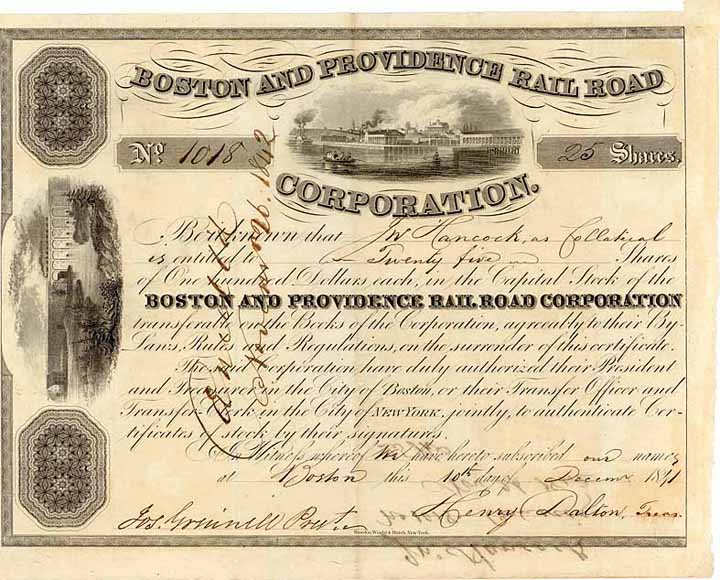 BOSTON AND PROVIDENCE RAIL ROAD
CORPORATION.
No. 1018
25 Shares.
Be it known that Jn Hancock, as Collateral
is entitled to Twenty five Shares
of One hundred Dollars each, in the Capital Stock of the
BOSTON AND PROVIDENCE RAIL ROAD CORPORATION
transferable on the Books of the Corporation, agreeably to their By-
Laws, Rules and Regulations, on the surrender of this certificate.
The said Corporation have duly authorized their President
and Treasurer in the City of Boston, or their Transfer Officer and
Transfer Clerk in the City of NEW YORK, jointly, to authenticate Cer-
tificates of stock by their signatures.
In Witness whereof We have hereto subscribed our names
at Boston this 10th day of Decemr 1841
Jos. Grinnell Prest
Henry Dalton, Treas.
New York.
Cancelled
1842